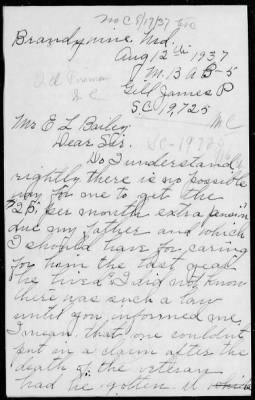 No C 8/17/37
Brandywine, Md.
Aug 12th 1937
J M. B A B-5
Gill James P
S.C. 19,725
M C
Mr E L Bailey
Dear Sir.
Do I understand
rightly there is no possible
way for me to get the
$25. per month extra pension
due my father and which
I should have for caring
for him the last year
he lived. I did not know
there was such a law
until you informed me
I mean that one couldn't
put in a claim after the
death of the veteran
had he gotten it